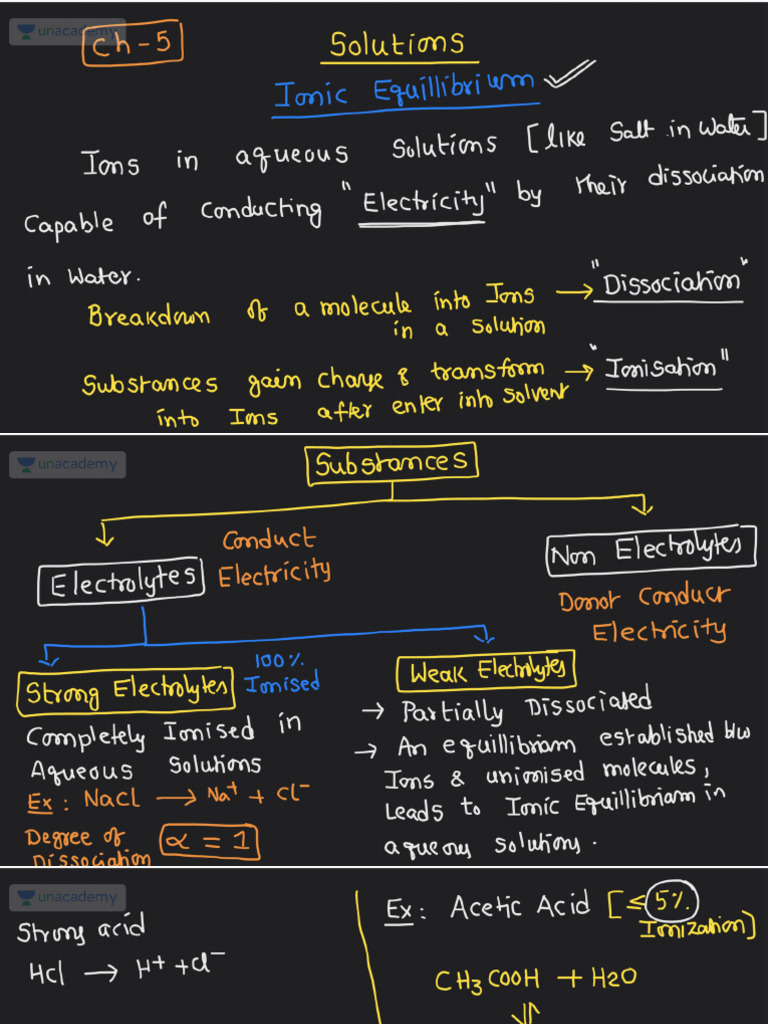 unacademy
Ch-5
Solutions
Ionic Equillibrium
Ions in aqueous Solutions [like Salt in Water]
Capable of Conducting "Electricity" by their dissociation
in Water.
Breakdown of a molecule into Ions → "Dissociation"
in a Solution
Substances gain Charge & transform → "Ionisation"
into Ions after enter into Solvent
unacademy
Substances
Electrolytes
Conduct
Electricity
Non Electrolytes
Donot Conduct
Electricity
100%
Ionised
Strong Electrolytes
Completely Ionised in
Aqueous Solutions
Ex: NaCl → Na⁺ + Cl⁻
Degree of
Dissociation
α = 1
Weak Electrolytes
→ Partially Dissociated
→ An equillibriam established b/w
Ions & unionised molecules,
Leads to Ionic Equillibriam in
aqueous solutions.
unacademy
Strong acid
HCl → H⁺ + Cl⁻
Ex: Acetic Acid [≤ 5%
Ionization]
CH₃COOH + H2O
⇌